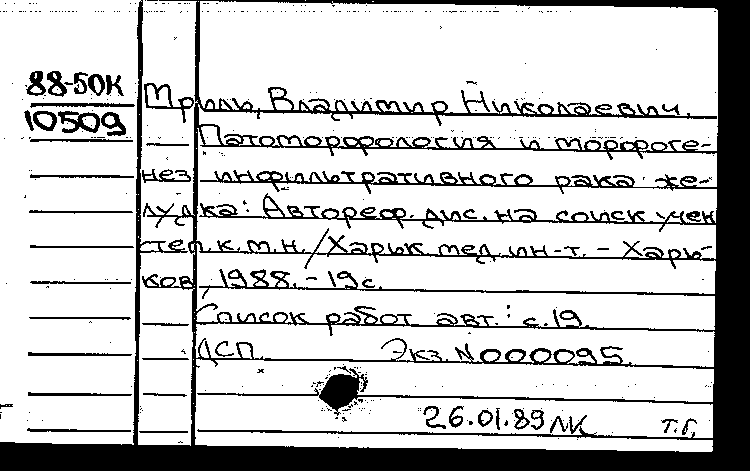 88-50К
10509
Мриль, Владимир Николаевич.
Патоморфология и морфоге-
нез инфильтративного рака же-
лудка: Автореф. дис. на соиск. учен.
степ. к.м.н. / Харьк. мед. ин-т. - Харь-
ков, 1988. - 19 с.
Список работ авт.: с. 19.
ДСП. Экз. N 000095.
26.01.89 ЛК т.г.